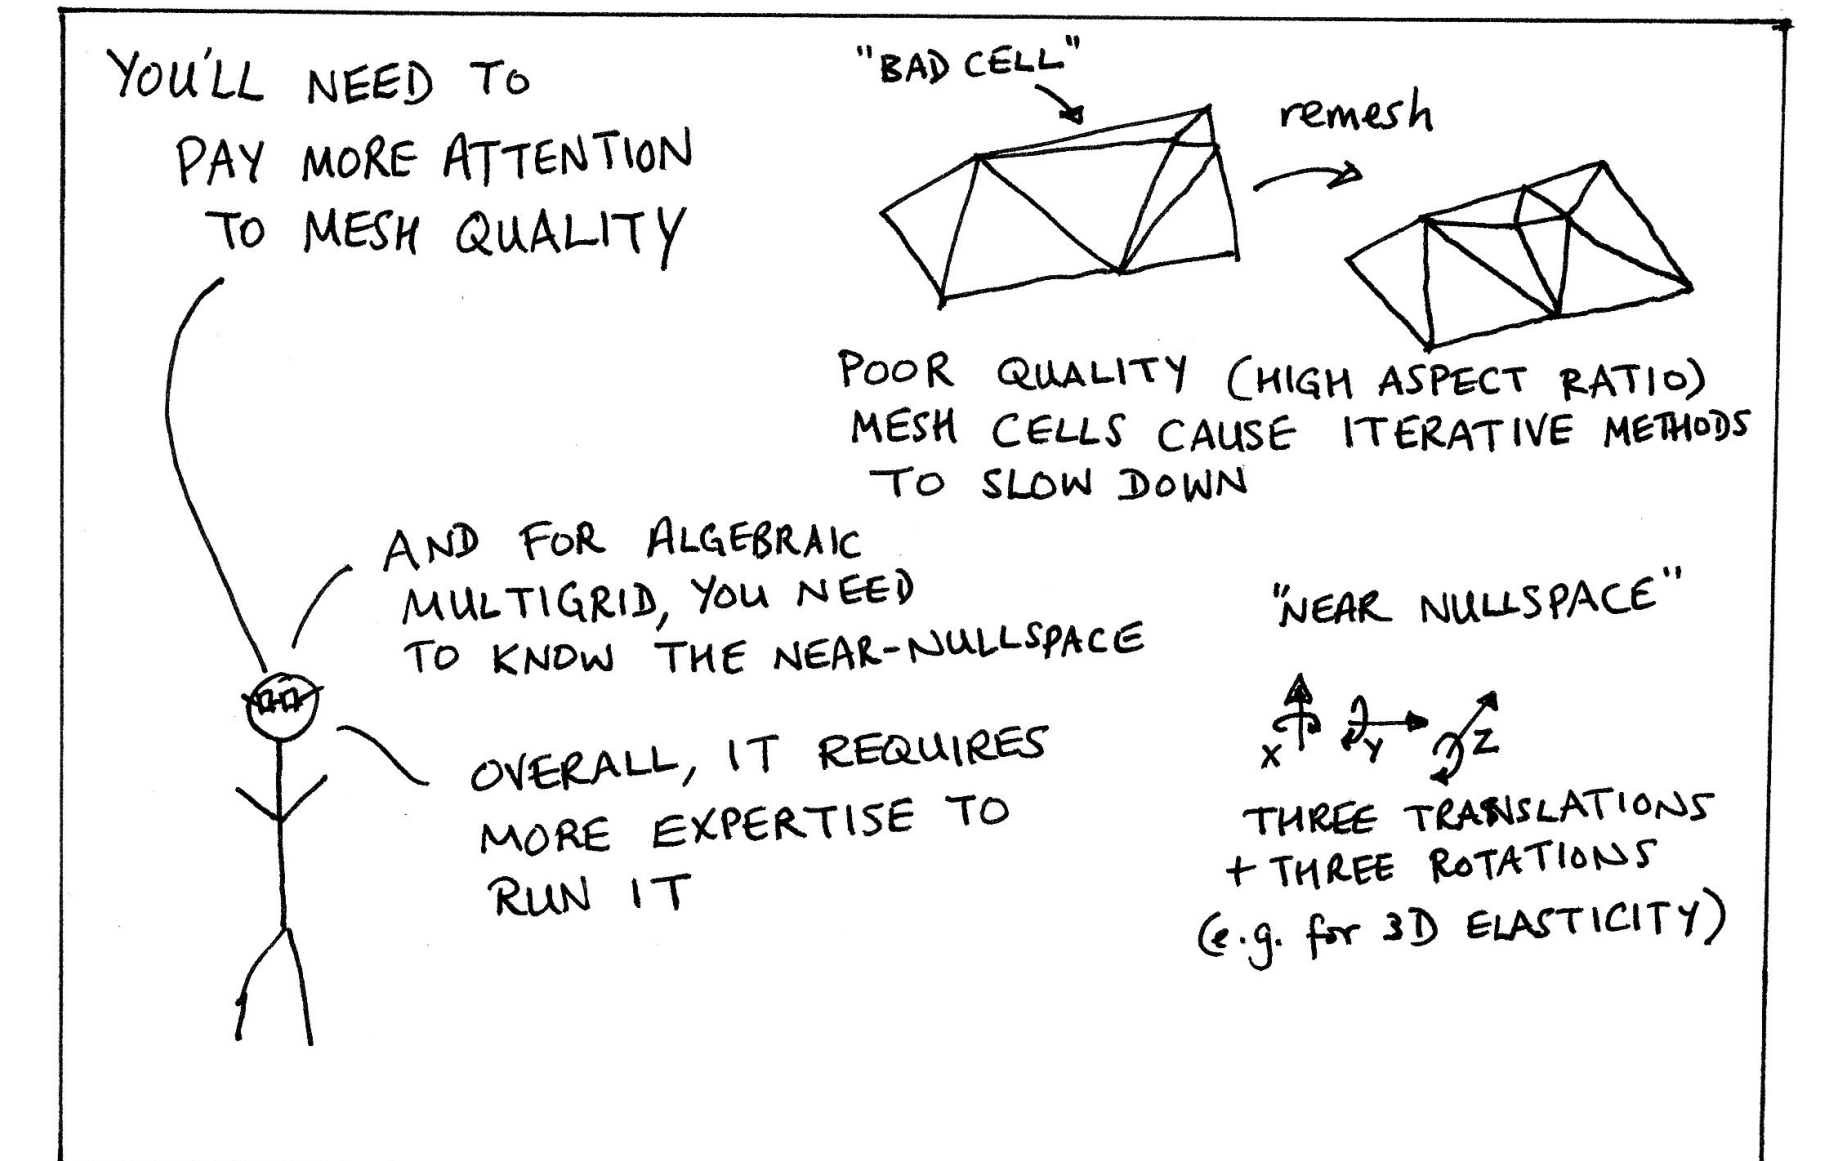 YOU'LL NEED TO
PAY MORE ATTENTION
TO MESH QUALITY
"BAD CELL"
remesh
POOR QUALITY (HIGH ASPECT RATIO)
MESH CELLS CAUSE ITERATIVE METHODS
TO SLOW DOWN
AND FOR ALGEBRAIC
MULTIGRID, YOU NEED
TO KNOW THE NEAR-NULLSPACE
OVERALL, IT REQUIRES
MORE EXPERTISE TO
RUN IT
"NEAR NULLSPACE"
X Y Z
THREE TRANSLATIONS
+ THREE ROTATIONS
(e.g. for 3D ELASTICITY)